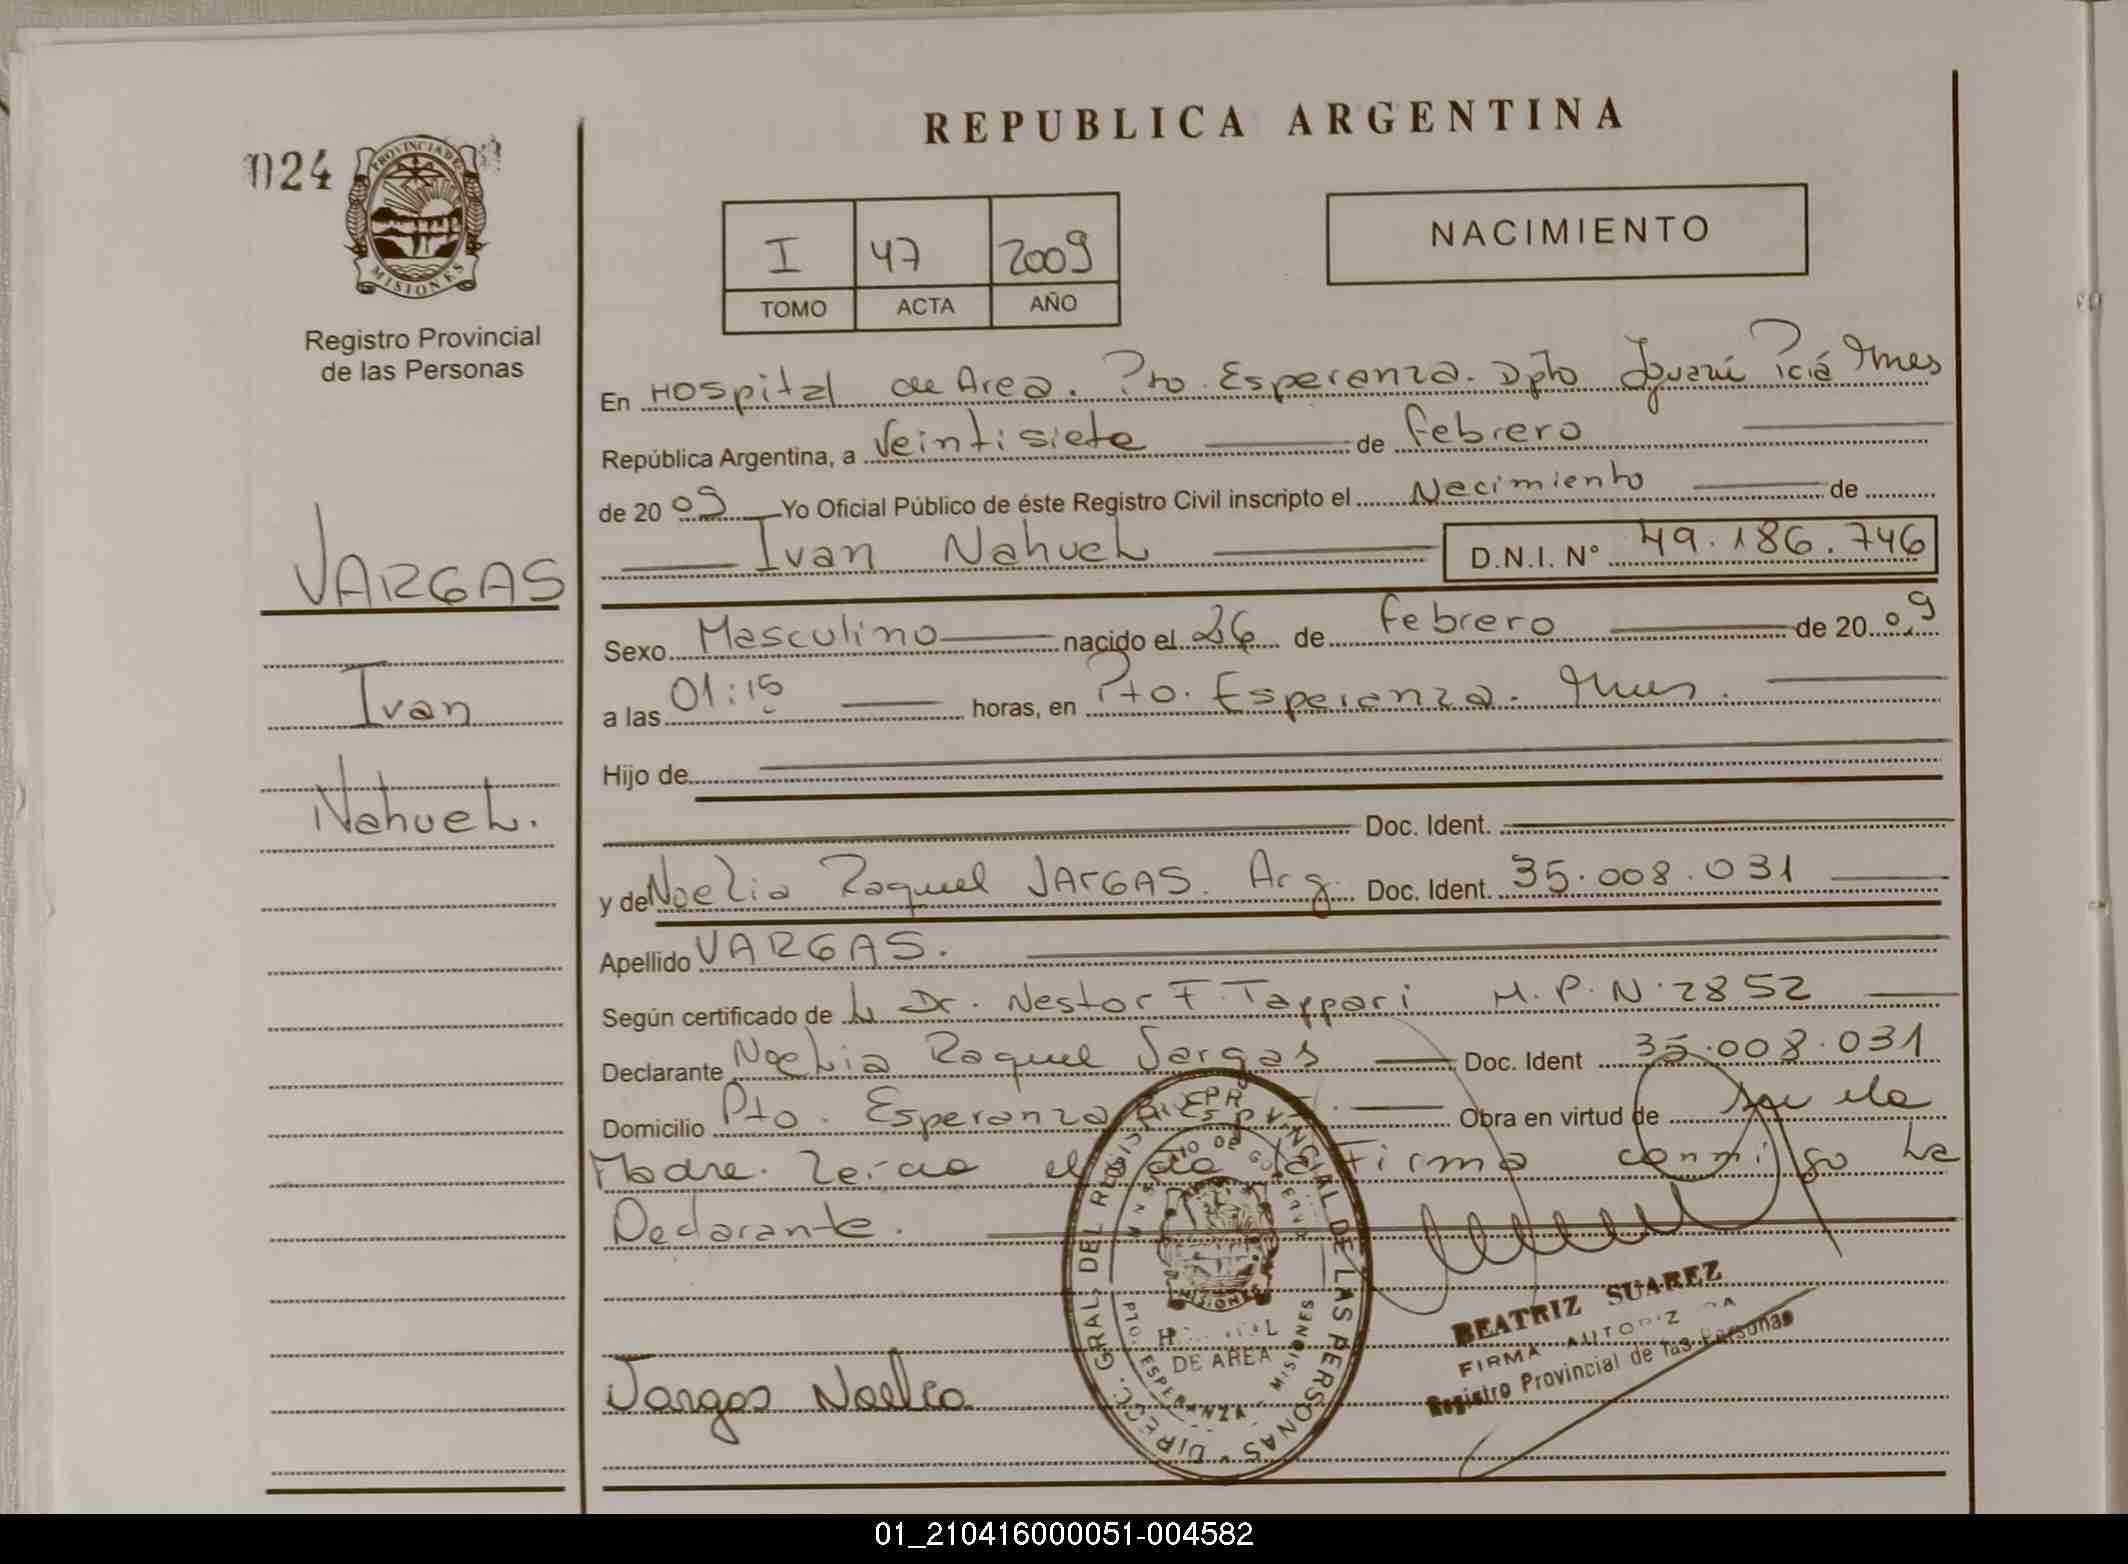 024
PROVINCIA DE
MISIONES
Registro Provincial
de las Personas
VARGAS
Ivan
Nahuel.
REPUBLICA ARGENTINA
I 47 2009
TOMO ACTA AÑO
NACIMIENTO
En Hospital de Area. Pto. Esperanza. Dpto Iguazú Pciá Mnes
República Argentina, a Veintisiete de febrero
de 2009 Yo Oficial Público de éste Registro Civil inscripto el Nacimiento de
Ivan Nahuel D.N.I. N° 49.186.746
Sexo Masculino nacido el 26 de febrero de 2009
a las 01:15 horas, en Pto. Esperanza. Mnes.
Hijo de
Doc. Ident.
y de Noelia Raquel VARGAS. Arg. Doc. Ident. 35.008.031
Apellido VARGAS.
Según certificado de Dr. Nestor F. Tappari M.P.N. 2852
Declarante Noelia Raquel Vargas Doc. Ident 35.008.031
Domicilio Pto. Esperanza Obra en virtud de
Madre. Leída el acta la firma conmigo La
Declarante.
DIRECC. GRAL. DEL REGISTRO PROVINCIAL DE LAS PERSONAS
MINISTERIO DE GOBIERNO
MISIONES
DE AREA
PTO. ESPERANZA - MISIONES
BEATRIZ SUAREZ
FIRMA AUTORIZADA
Registro Provincial de las Personas
Vargas Noelia
01_210416000051-004582